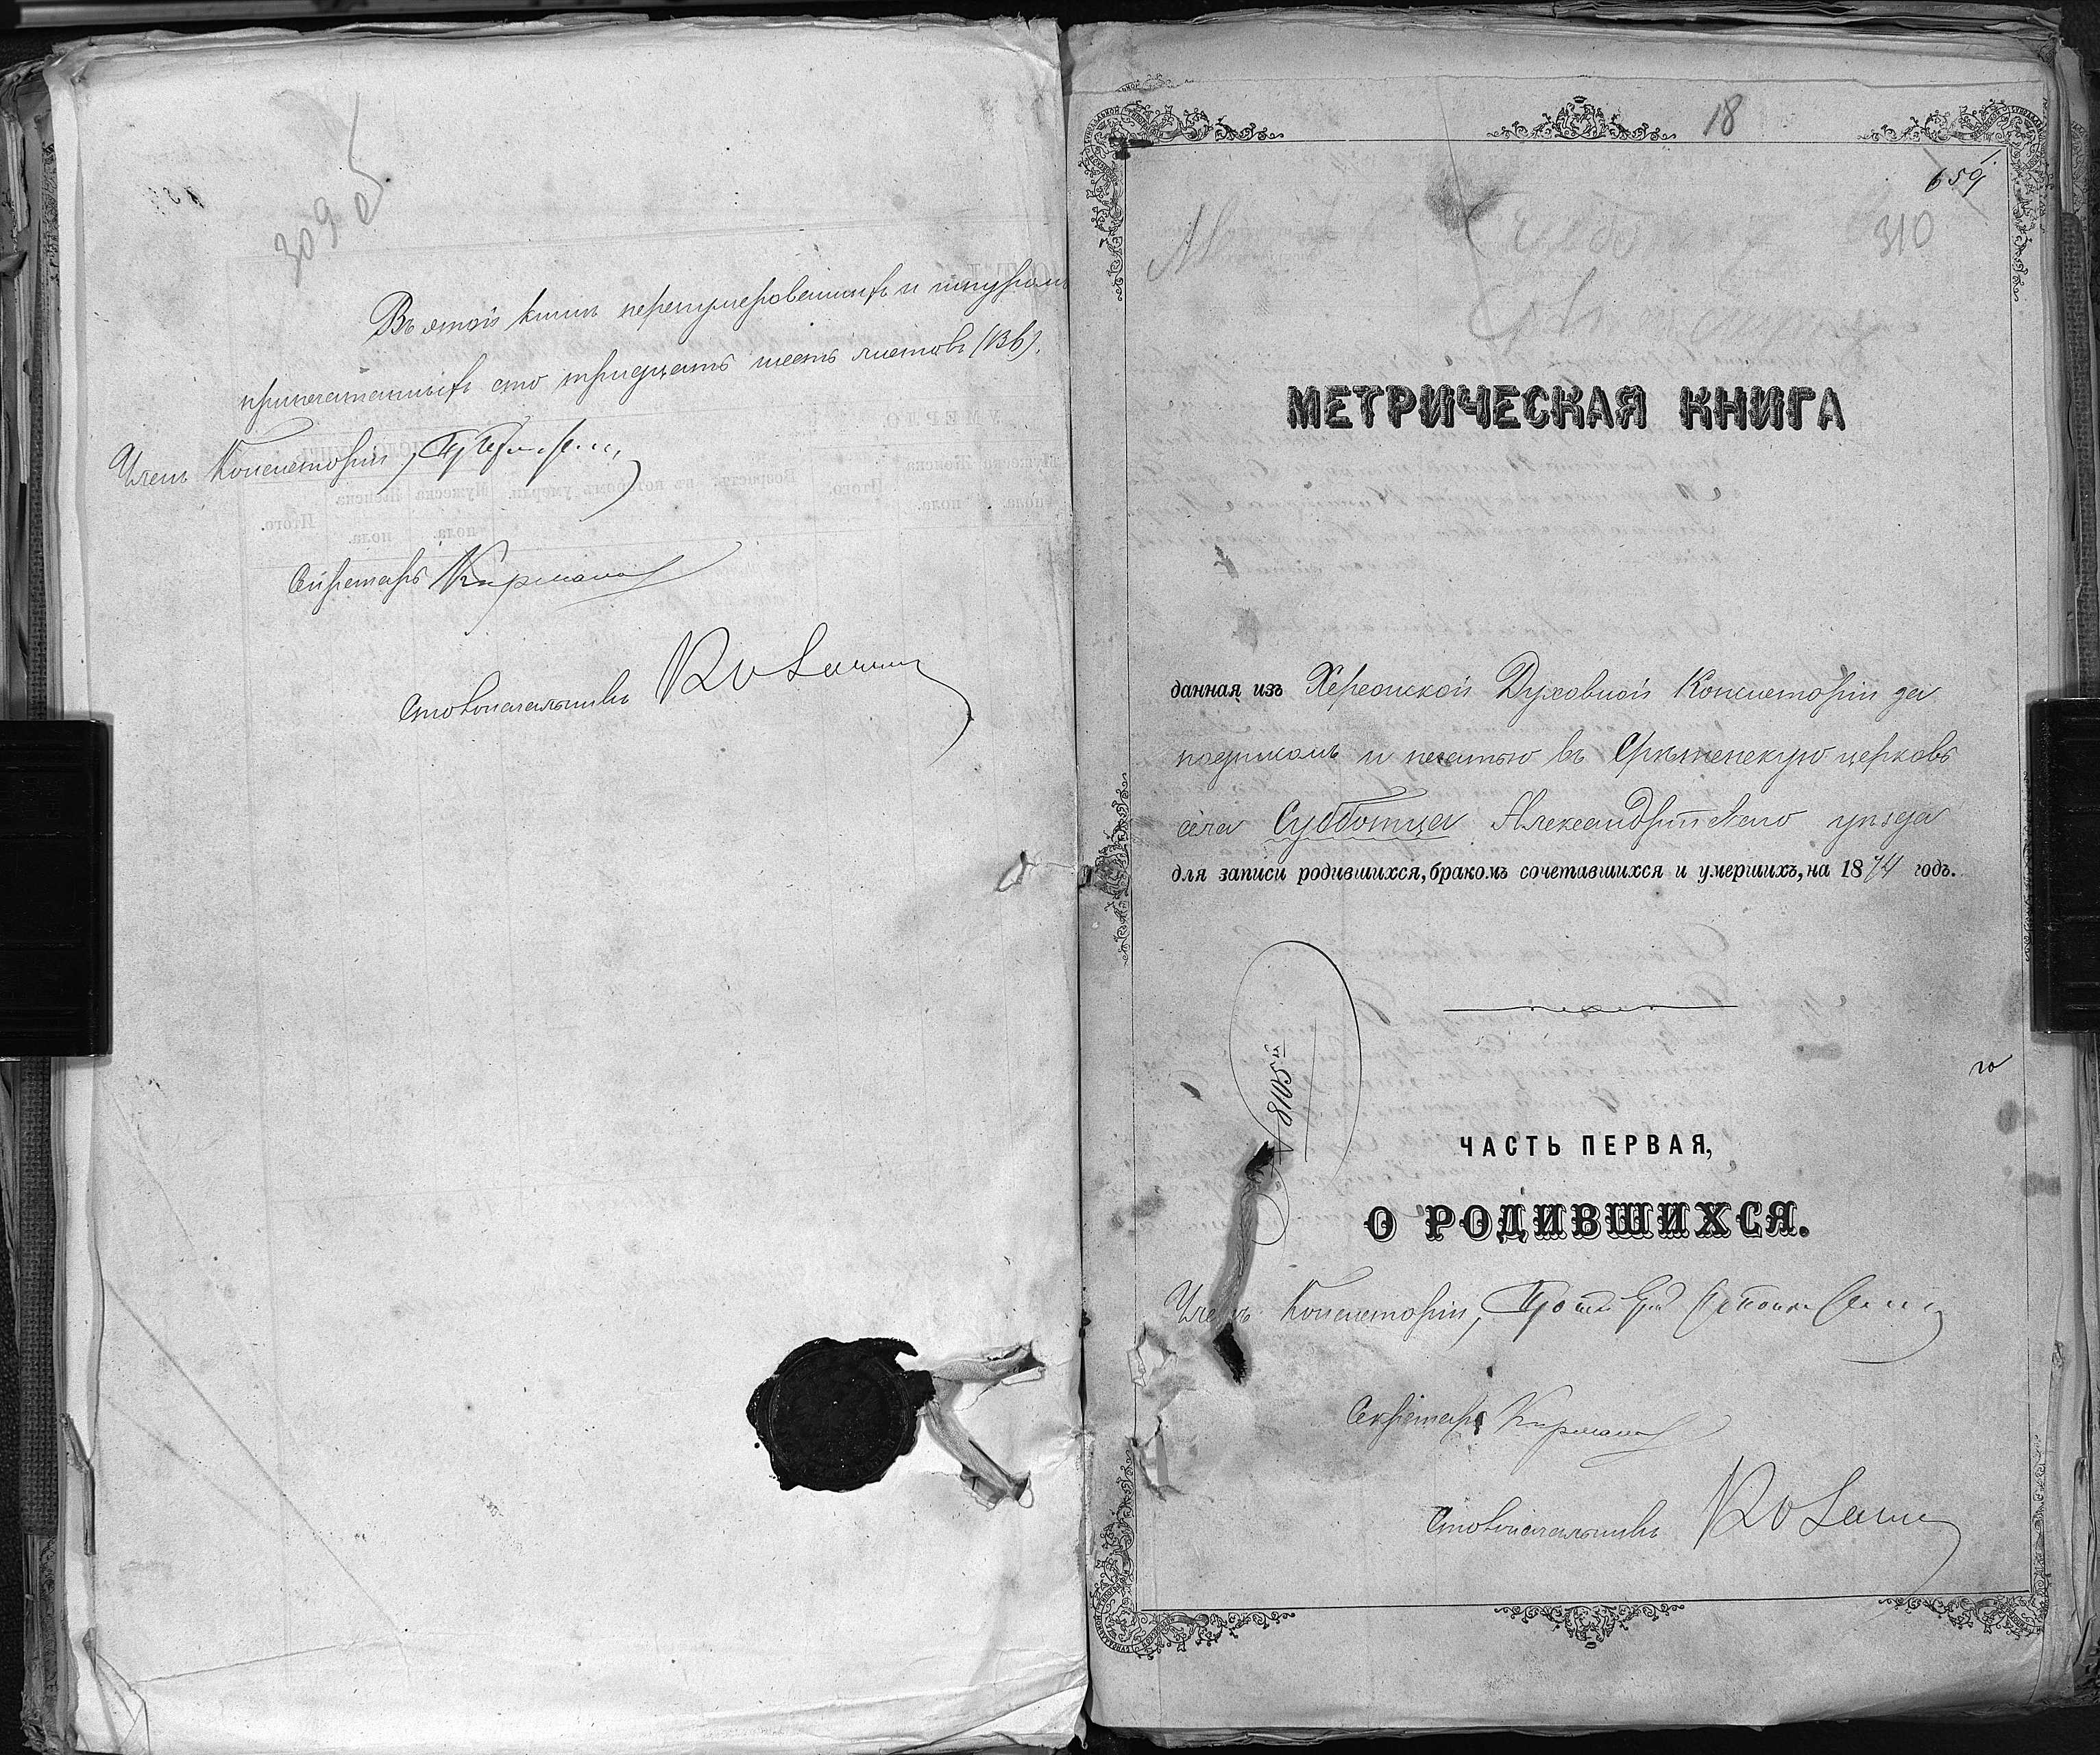 309 об
Въ этой книгѣ перенумерованныхъ и шнуром
припечатанныхъ сто тридцать шесть листовъ (136).
Членъ Консисторіи,
Секретарь
Столоначальникъ
18
659
310
№
Субботцы
Срѣтен
МЕТРИЧЕСКАЯ КНИГА
данная изъ Херсонской Духовной Консисторіи за
подписомъ и печатью въ Срѣтенскую церковь
села Субботца Александрійскаго уѣзда
для записи родившихся, бракомъ сочетавшихся и умершихъ, на 1874 годъ.
№ 8105й
ЧАСТЬ ПЕРВАЯ,
О РОДИВШИХСЯ.
Членъ Консисторіи,
Секретарь
Столоначальникъ